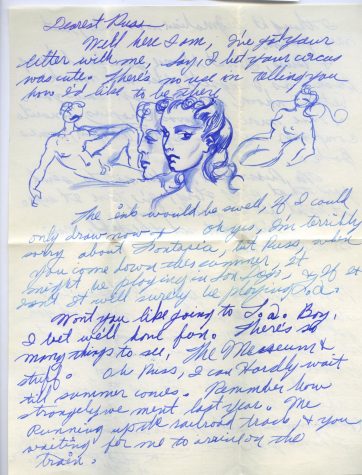 Dearest Russ
Well here I am, I've got your
letter with me, boy, I bet your circus
was cute. There's no use in telling you
how I'd like to be there
The ink would be swell, if I could
only draw now & Oh yes, I'm terribly
sorry about Fantasia, but Russ, when
you come down this summer, it
might be playing in & If it
isn't it will surely be playing L.a.
Wont you like going to L.a. Boy,
I bet we'll have fun. There's so
many things to see, The Messeum &
stuff. Oh Russ, I can Hardly wait
till summer comes. Remmber how
strangely we ment last year. Me
Running up the railroad track, & you
waiting for me to arain on the
train.